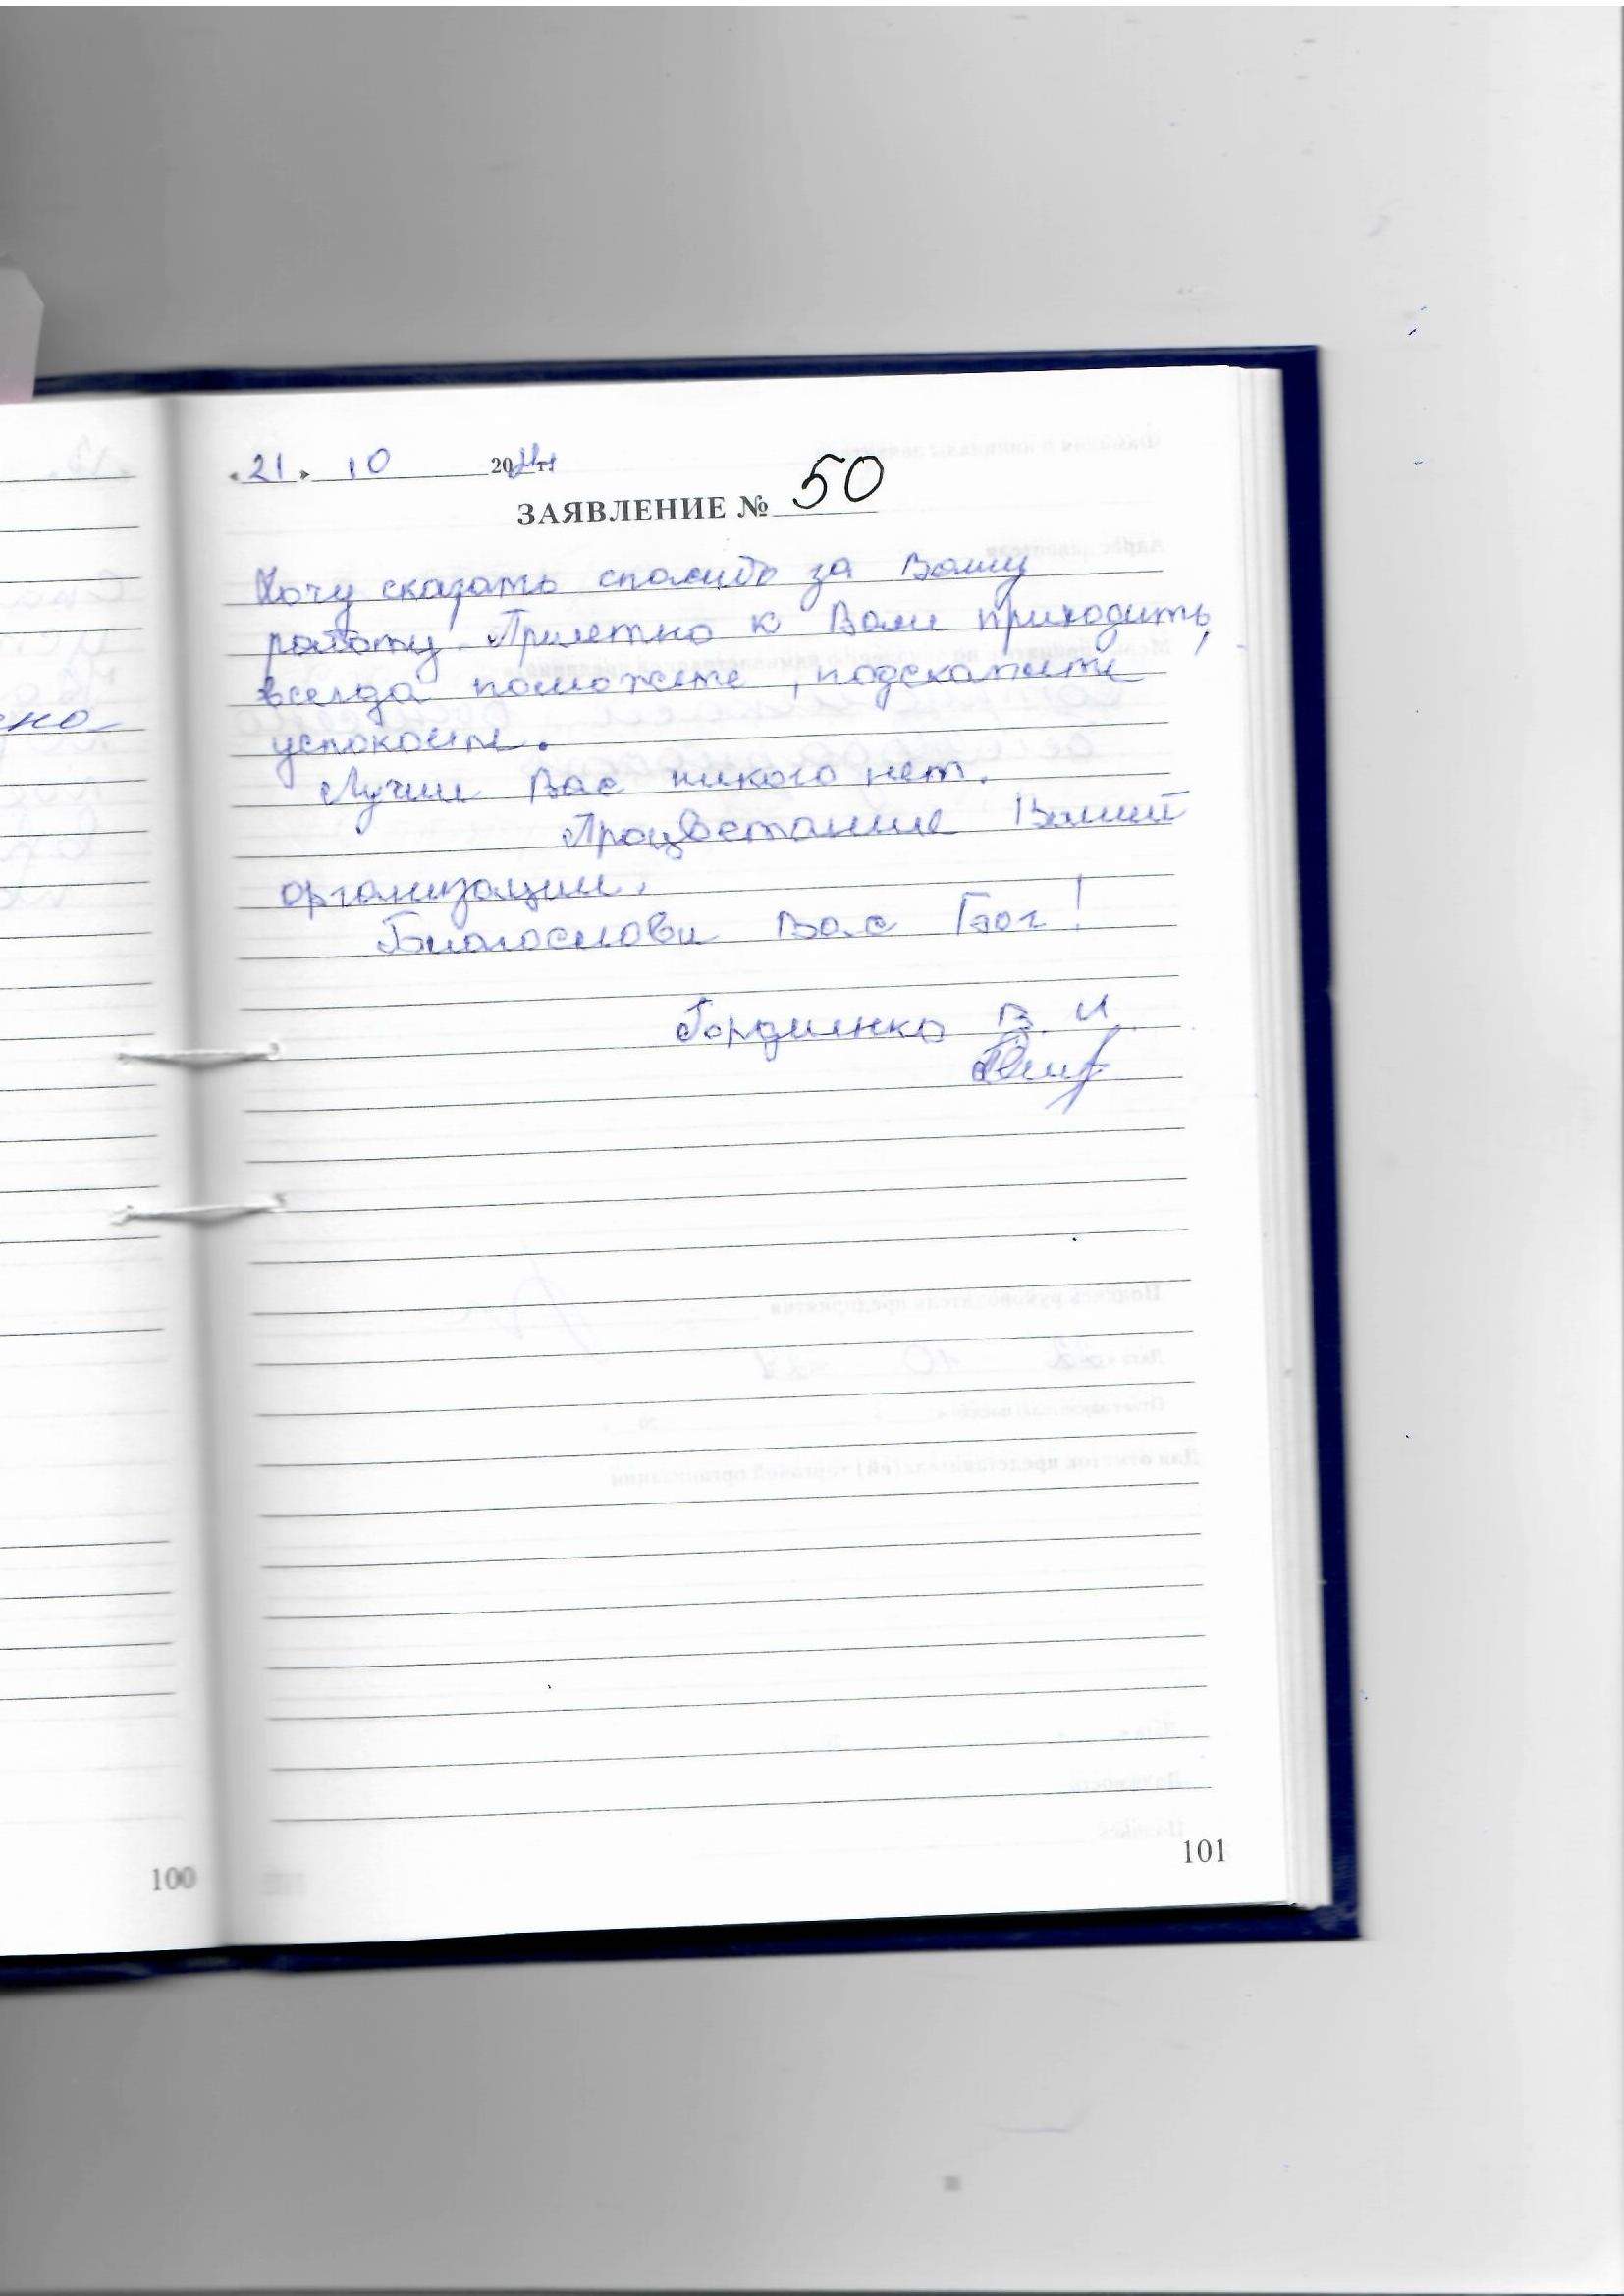 «21» 10 2024 г.
ЗАЯВЛЕНИЕ № 50
Хочу сказать спасибо за Вашу
работу. Приятно к Вам приходить,
всегда поможете, подскажете
успокоите.
Лучше Вас никого нет.
Процветание Вашей
организации.
Благослови Вас Бог!
Гордиенко В. И
100
101